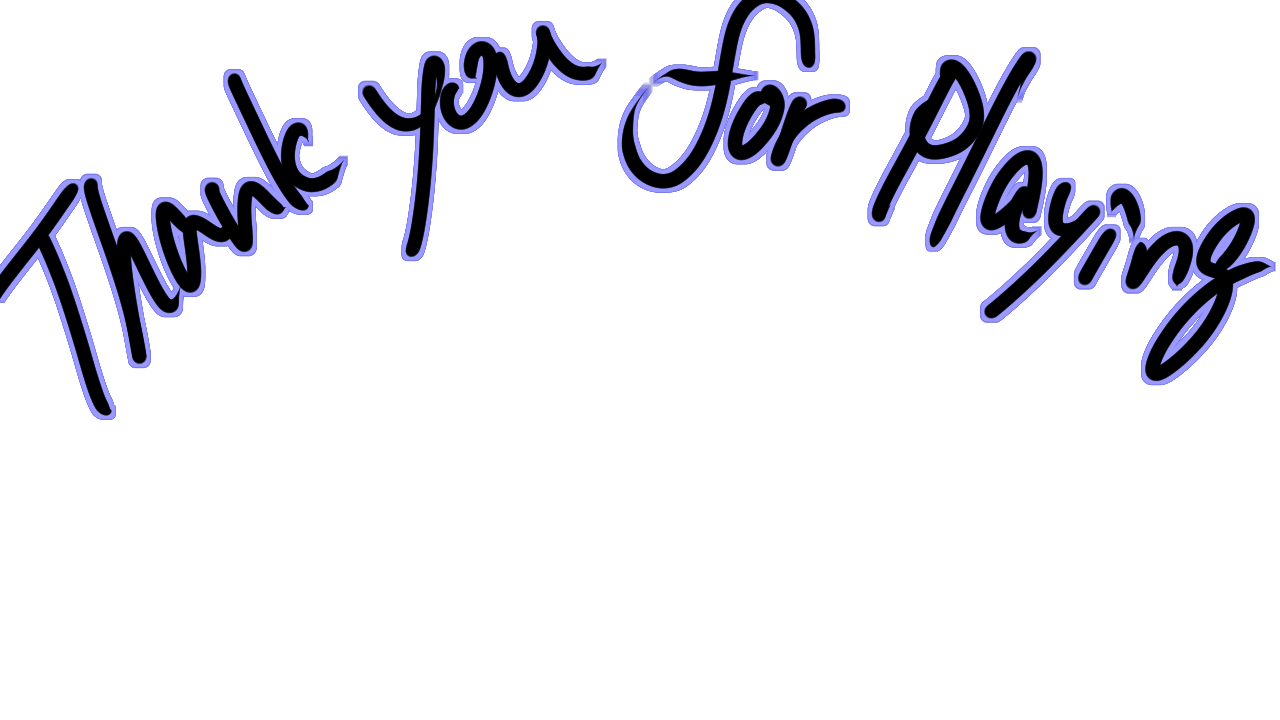 Thank you for Playing